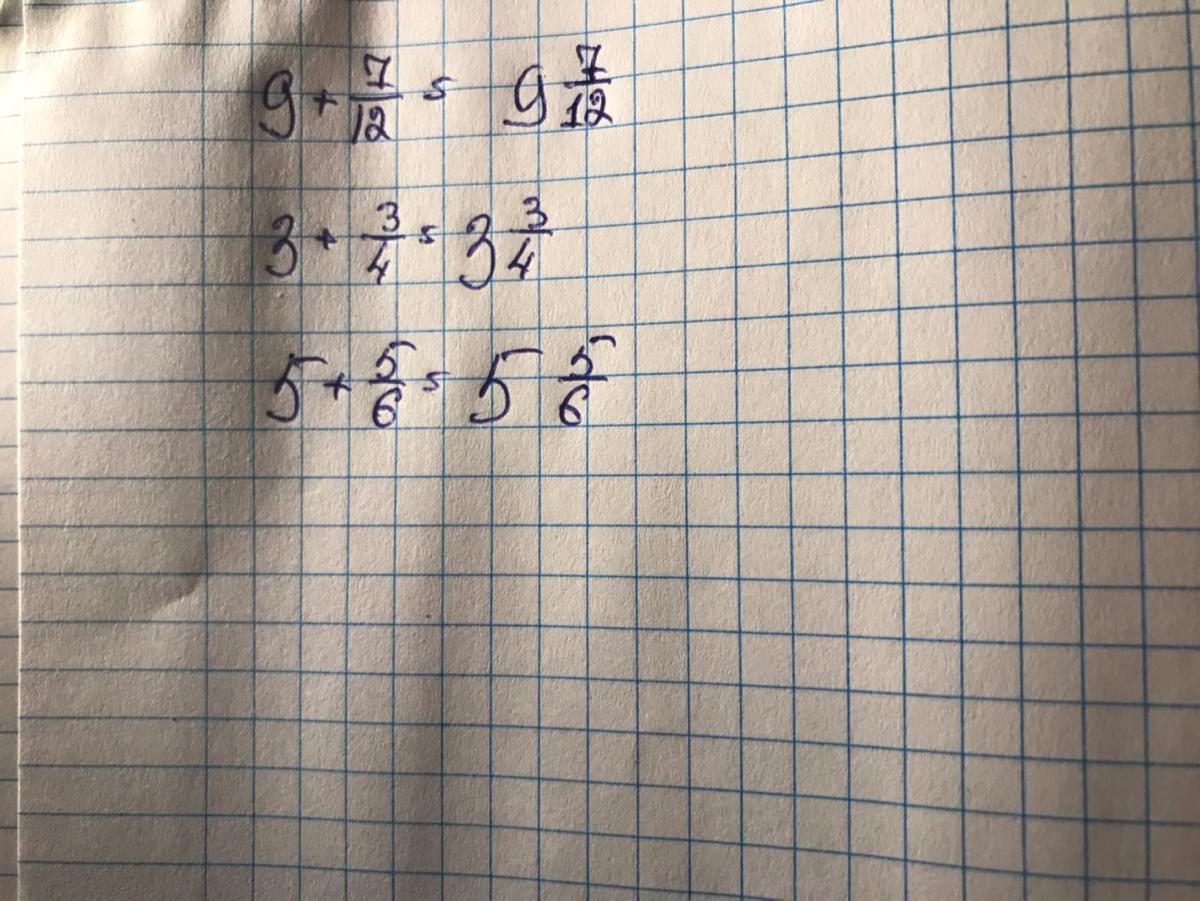 9 + 7/12 = 9 7/12
3 + 3/4 = 3 3/4
5 + 5/6 = 5 5/6